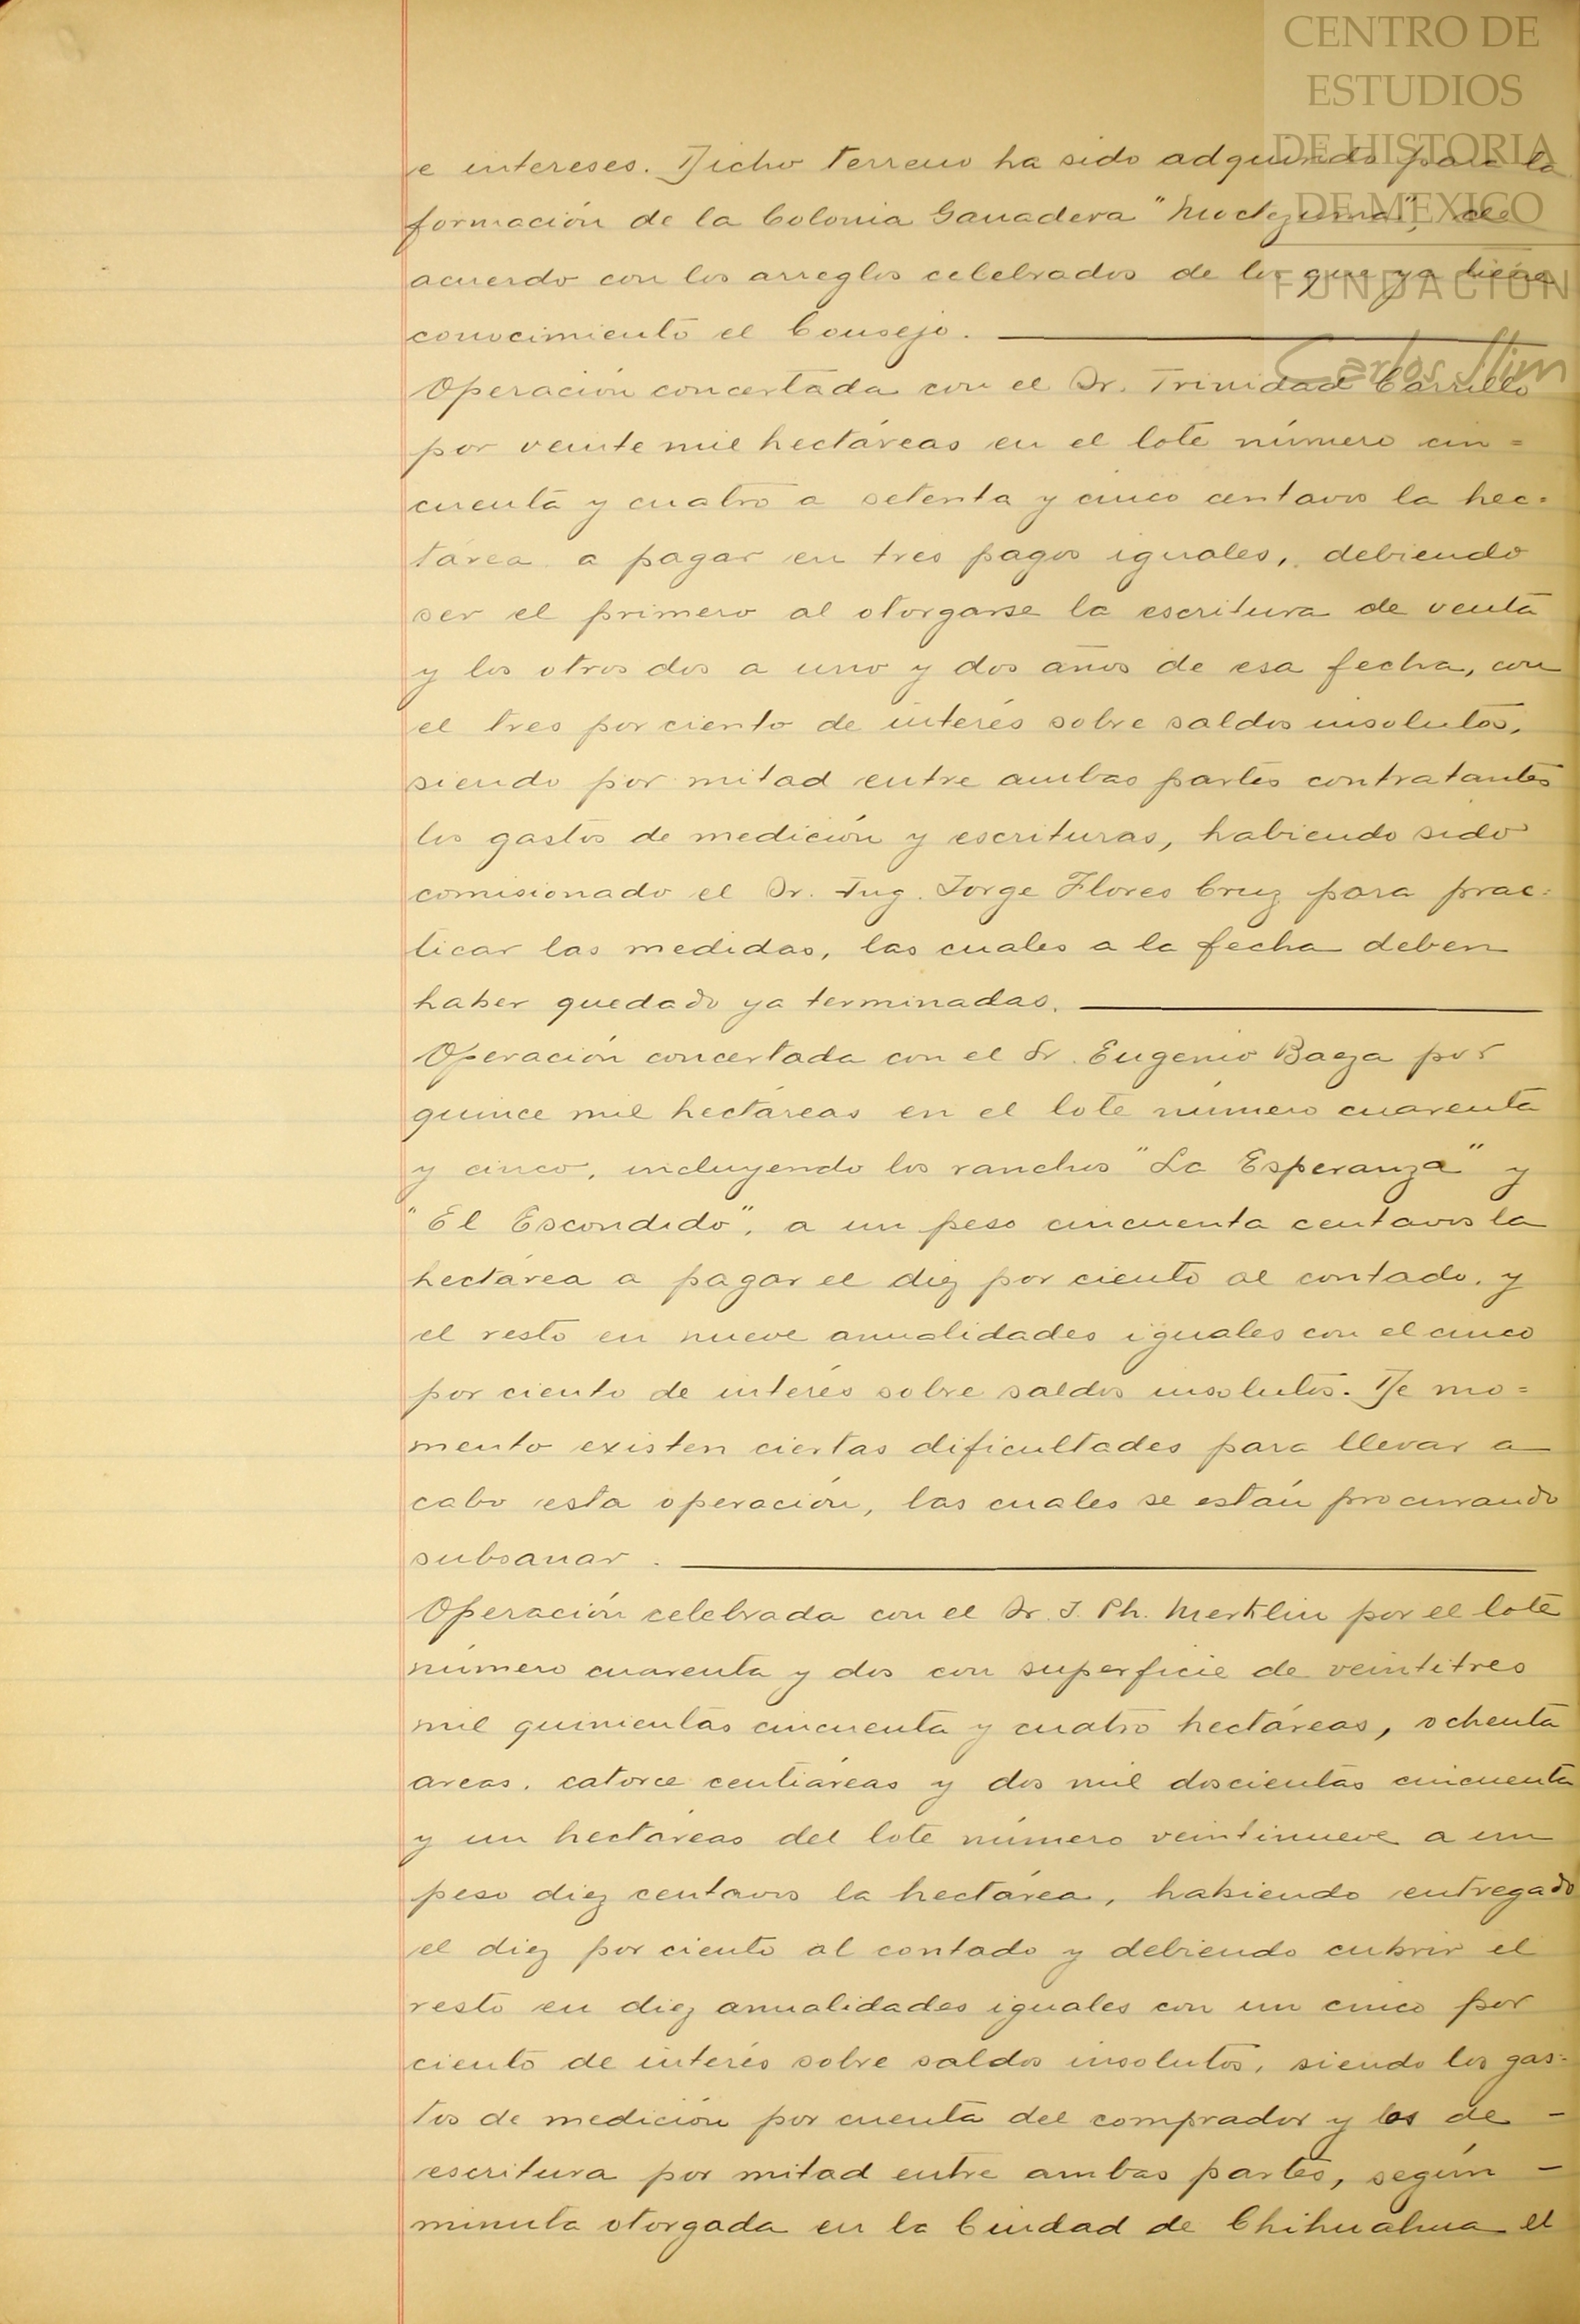 CENTRO DE
ESTUDIOS
DE HISTORIA
DE MEXICO
FUNDACIÓN
Carlos Slim
e intereses. Dicho terreno ha sido adquirido para la
formación de la Colonia Ganadera "Moctezuma", de
acuerdo con los arreglos celebrados de los que ya tiene
conocimiento el Consejo.
Operación concertada con el Sr. Trinidad Carrillo
por veinte mil hectáreas en el lote número cin=
cuenta y cuatro a setenta y cinco centavos la hec=
tárea a pagar en tres pagos iguales, debiendo
ser el primero al otorgarse la escritura de venta
y los otros dos a uno y dos años de esa fecha, con
el tres por ciento de interés sobre saldos insolutos,
siendo por mitad entre ambas partes contratantes
los gastos de medición y escrituras, habiendo sido
comisionado el Sr. Ing. Jorge Flores Cruz para prac=
ticar las medidas, las cuales a la fecha deben
haber quedado ya terminadas.
Operación concertada con el Sr. Eugenio Baeza por
quince mil hectáreas en el lote número cuarenta
y cinco, incluyendo los ranchos "La Esperanza" y
"El Escondido", a un peso cincuenta centavos la
hectárea a pagar el diez por ciento al contado, y
el resto en nueve anualidades iguales con el cinco
por ciento de interés sobre saldos insolutos. De mo=
mento existen ciertas dificultades para llevar a
cabo esta operación, las cuales se están procurando
subsanar.
Operación celebrada con el Sr. J. Ph. Mertlin por el lote
número cuarenta y dos con superficie de veintitres
mil quinientas cincuenta y cuatro hectáreas, ochenta
areas, catorce centiáreas y dos mil doscientas cincuenta
y un hectáreas del lote número veintinueve a un
peso diez centavos la hectárea, habiendo entregado
el diez por ciento al contado y debiendo cubrir el
resto en diez anualidades iguales con un cinco por
ciento de interés sobre saldos insolutos, siendo los gas=
tos de medición por cuenta del comprador y los de -
escritura por mitad entre ambas partes, según -
minuta otorgada en la Ciudad de Chihuahua el